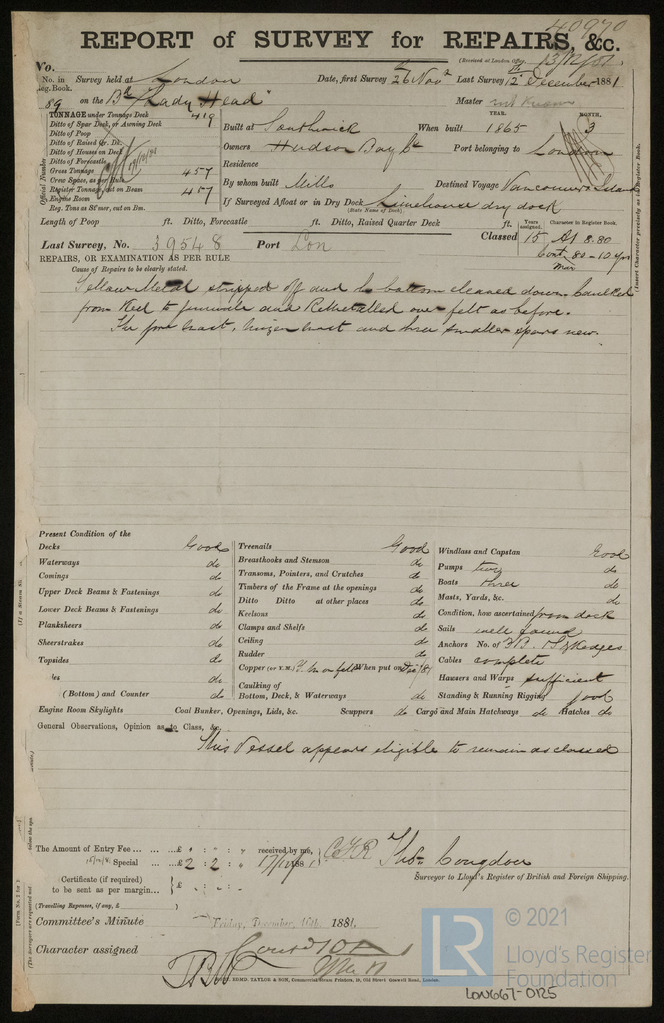 40970
REPORT of SURVEY for REPAIRS, &c.
(Received at London Office, 13/12/81
No.
No. in Reg. Book. Survey held at London Date, first Survey 26th Novr Last Survey 12th December 1881
89 on the Bk "Lady Head" Master
TONNAGE under Tonnage Deck 419
Ditto of Spar Deck, or Awning Deck
Ditto of Poop
Ditto of Raised Qr. Dk.
Ditto of Houses on Deck
Ditto of Forecastle
Gross Tonnage 457
Crew Space, as per Rule
Register Tonnage, cut on Beam 457
Engine Room
Reg. Tons as St'mer, cut on Bm.
Official Number
Built at Southwick When built YEAR. 1865 MONTH. 3
Owners Hudson Bay Co Port belonging to London
Residence
By whom built Mills Destined Voyage Vancouvers Island
If Surveyed Afloat or in Dry Dock Limehouse dry dock
(State Name of Dock)
Length of Poop ft. Ditto, Forecastle ft. Ditto, Raised Quarter Deck ft.
Years assigned. Character in Register Book.
Last Survey, No. 39548 Port Lon Classed 15 A1 8.80
Cont. 80 - 10 yrs
Mar
REPAIRS, OR EXAMINATION AS PER RULE
Cause of Repairs to be clearly stated.
Yellow Metal stripped off and the bottom cleaned down. Caulked
from Keel to gunwale and Remetalled over felt as before.
The fore mast, mizen mast and three smaller spars new.
Present Condition of the
Decks Good
Waterways do
Comings do
Upper Deck Beams & Fastenings do
Lower Deck Beams & Fastenings do
Planksheers do
Sheerstrakes do
Topsides do
do
(Bottom) and Counter do
Treenails Good
Breasthooks and Stemson do
Transoms, Pointers, and Crutches do
Timbers of the Frame at the openings do
Ditto Ditto at other places do
Keelsons do
Clamps and Shelfs do
Ceiling do
Rudder do
Copper (or Y.M.) Y.M on felt When put on Dec/81
Caulking of Bottom, Deck, & Waterways do
Windlass and Capstan Good
Pumps two do
Boats three do
Masts, Yards, &c. do
Condition, how ascertained from dock
Sails well found
Anchors No. of 3B. 1S, 2 Kedges
Cables complete
Hawsers and Warps sufficient
Standing & Running Rigging good
Engine Room Skylights Coal Bunker, Openings, Lids, &c. Scuppers do Cargo and Main Hatchways do Hatches do
General Observations, Opinion as to Class, &c.
This Vessel appears eligible to remain as classed
The Amount of Entry Fee ... ... £ : : received by me,
Special ... £2 : 2 : " 17/12/1881
Certificate (if required) to be sent as per margin... £ : :
(Travelling Expenses, if any, £ )
Thos. Congdon
Surveyor to Lloyd's Register of British and Foreign Shipping.
Committee's Minute Friday, December, 16th 1881.
Character assigned
EDMD. TAYLOR & SON, Commercial Steam Printers, 19, Old Street Goswell Road, London.
LR © 2021
Lloyd's Register
Foundation
LON667-0125